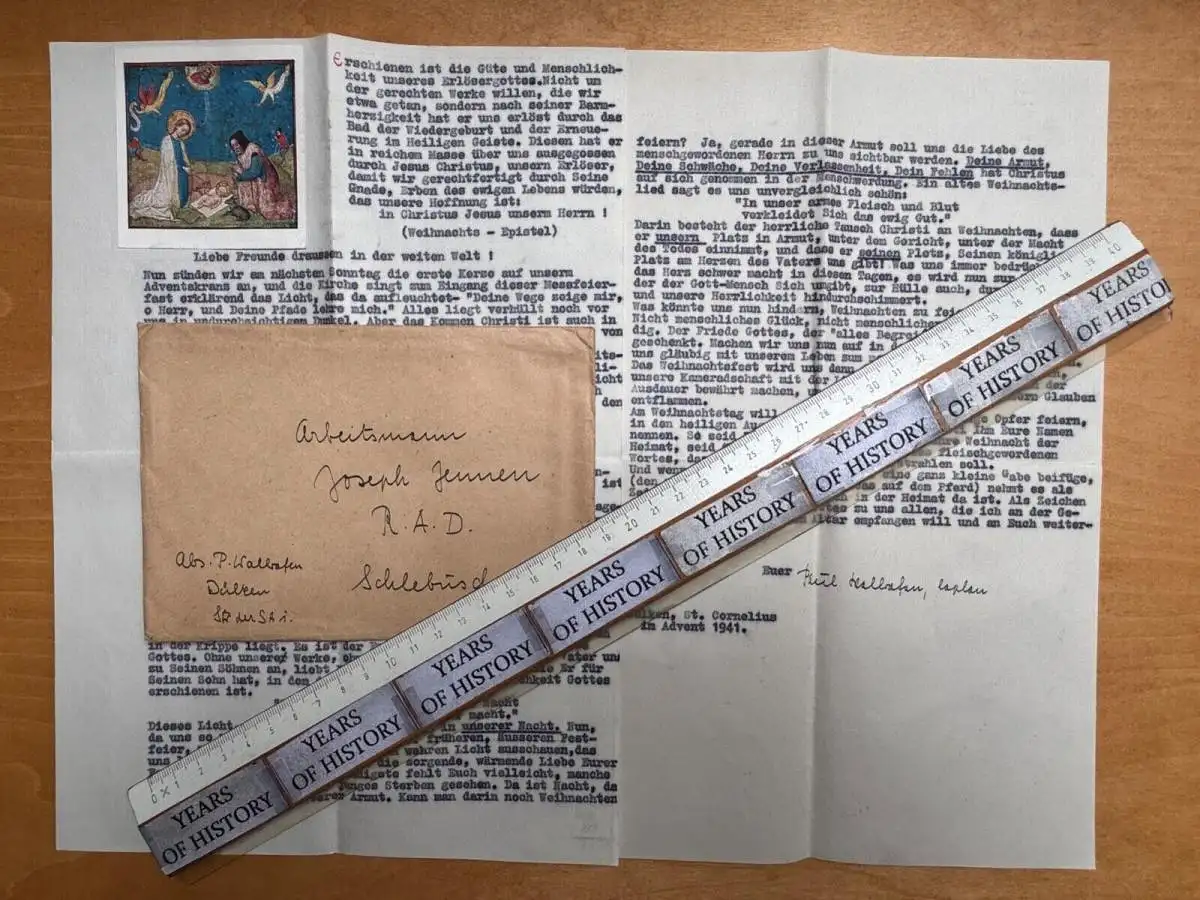 Erschienen ist die Güte und Menschlich-
keit unseres Erlösergottes.Nicht um
der gerechten Werke willen, die wir
etwa getan, sondern nach seiner Barm-
herzigkeit hat er uns erlöst durch das
Bad der Wiedergeburt und der Erneue-
rung im Heiligen Geiste. Diesen hat er
in reichem Masse über uns ausgegossen
durch Jesus Christus, unsern Erlöser,
damit wir gerechtfertigt durch Seine
Gnade, Erben des ewigen Lebens würden,
das unsere Hoffnung ist:
in Christus Jesus unserm Herrn !
(Weihnachts - Epistel)
Liebe Freunde draussen in der weiten Welt !
Nun zünden wir am nächsten Sonntag die erste Kerze auf unserm
Adventskrans an, und die Kirche singt zum Eingang dieser Messfeier-
fast erklärend das Licht, das da aufleuchtet- "Deine Wege zeige mir,
o Herr, und Deine Pfade lehre mich." Alles liegt verhüllt noch vor
uns in undurchsichtigem Dunkel. Aber das Kommen Christi ist auch in
von
den
ist
in der Krippe liegt. Es ist der
Gottes. Ohne unserer Werke,
zu Seinen Söhnen an, liebt
Seinen Sohn hat, in den
erschienen ist.
Vater und
Er für
Gottes
macht."
Dieses Licht
da uns so
feier,
uns
in unserer Nacht. Nun,
früheren, äusseren Fest-
wahren Licht ausschauen,das
die sorgende, wärmende Liebe Eurer
fehlt Euch vielleicht, manche
junges Sterben gesehen. Da ist Nacht, da
Armut. Kann man darin noch Weihnachten
feiern? Ja, gerade in dieser Armut soll uns die Liebe des
menschgewordenen Herrn zu uns sichtbar werden. Deine Armut,
Deine Schwäche, Deine Verlassenheit, Dein Fehlen hat Christus
auf sich genommen in der Menschwerdung. Ein altes Weihnachts-
lied sagt es uns unvergleichlich schön:
"In unser armes Fleisch und Blut
verkleidet Sich das ewig Gut."
Darin besteht der herrliche Tausch Christi an Weihnachten, dass
er unsern Platz in Armut, unter dem Gericht, unter der Macht
des Todes einnimmt, und dass er seinen Platz, Seinen königli
Platz am Herzen des Vaters uns gibt! Was uns immer bedrü
das Herz schwer macht in diesen Tagen, es wird nun zur
der der Gott-Mensch Sich umgibt, zur Hülle auch, du
und unsere Herrlichkeit hindurchschimmert.
Was könnte uns nun hindern, Weihnachten zu fei
Nicht menschliches Glück, nicht menschliche
dig. Der Friede Gottes, der "alles Begrei
geschenkt. Machen wir uns nun auf in d
uns gläubig mit unserem Leben zum
Das Weihnachtsfest wird uns dann
unsere Kameradschaft mit der
Ausdauer bewährt machen,
entflammen.
der
Glauben
Am Weihnachtstag will
in den heiligen Au
nennen. So seid
Heimat, seid
Wortes, da
Und wenn
(den
Opfer feiern,
ihm Eure Namen
Weihnacht der
fleischgewordenen
strahlen soll.
eine ganz kleine Gabe beifüge,
as auf dem Pferd) nehmt es als
in der Heimat da ist. Als Zeichen
zu uns allen, die ich an der Ge-
Altar empfangen will und an Euch weiter-
Euer Paul Walbafen, caplan
St. Cornelius
im Advent 1941.
Arbeitsmann
Joseph Jennen
R.A.D.
Schlebusch
Abs. P. Walbafen
Dülken
Str der SA 1.
0 1 2 3 4 5 6 7 8 9 10 11 12 13 14 15 16 17 18 19 20 21 22 23 24 25 26 27 28 29 30 31 32 33 34 35 36 37 38 39 40
YEARS
OF HISTORY
YEARS
OF HISTORY
YEARS
OF HISTORY
YEARS
OF HISTORY
YEARS
OF HISTORY
YEARS
OF HISTORY
YEARS
OF HISTORY
YEARS
OF HISTORY